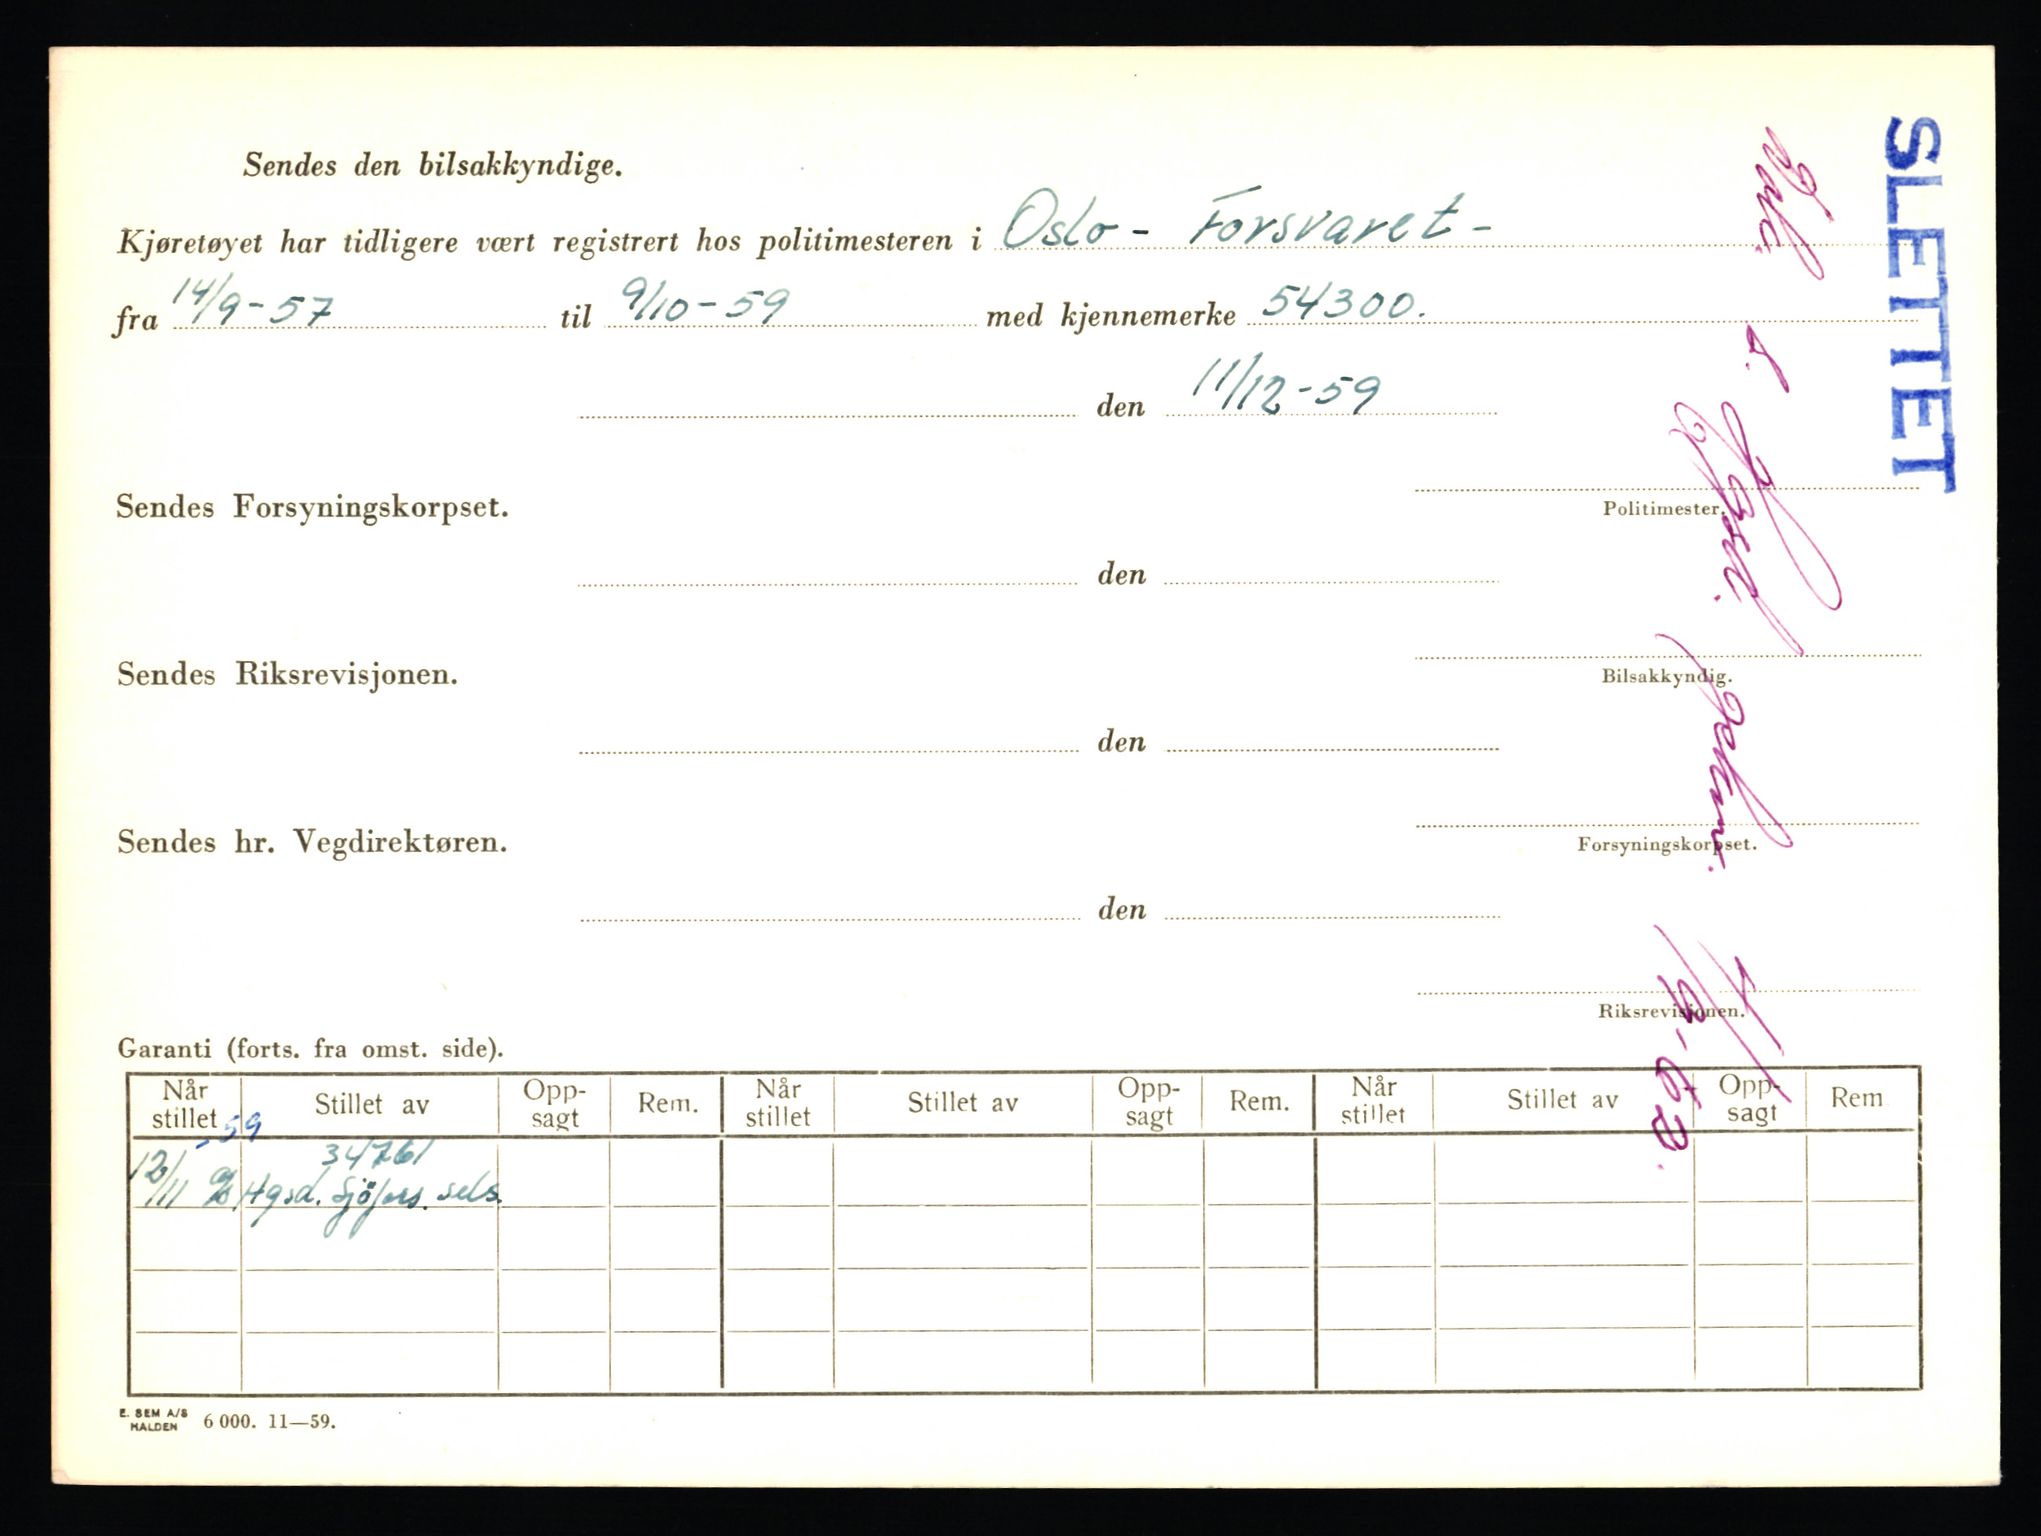 Sendes den bilsakkyndige.
Kjøretøyet har tidligere vært registrert hos politimesteren i Oslo - Forsvaret -
fra 14/9-57 til 9/10-59 med kjennemerke 54300.
den 11/12-59
Sendes Forsyningskorpset.
Politimester.
den
Sendes Riksrevisjonen.
Bilsakkyndig.
den
Sendes hr. Vegdirektøren.
Forsyningskorpset.
den
Riksrevisjonen.
Garanti (forts. fra omst. side).
Når stillet Stillet av Opp-sagt Rem. Når stillet Stillet av Opp-sagt Rem. Når stillet Stillet av Opp-sagt Rem
-59
34761
Hgsd. Sjöfors. sels.
E. SEM A/S
HALDEN 6 000. 11—59.
SLETTET